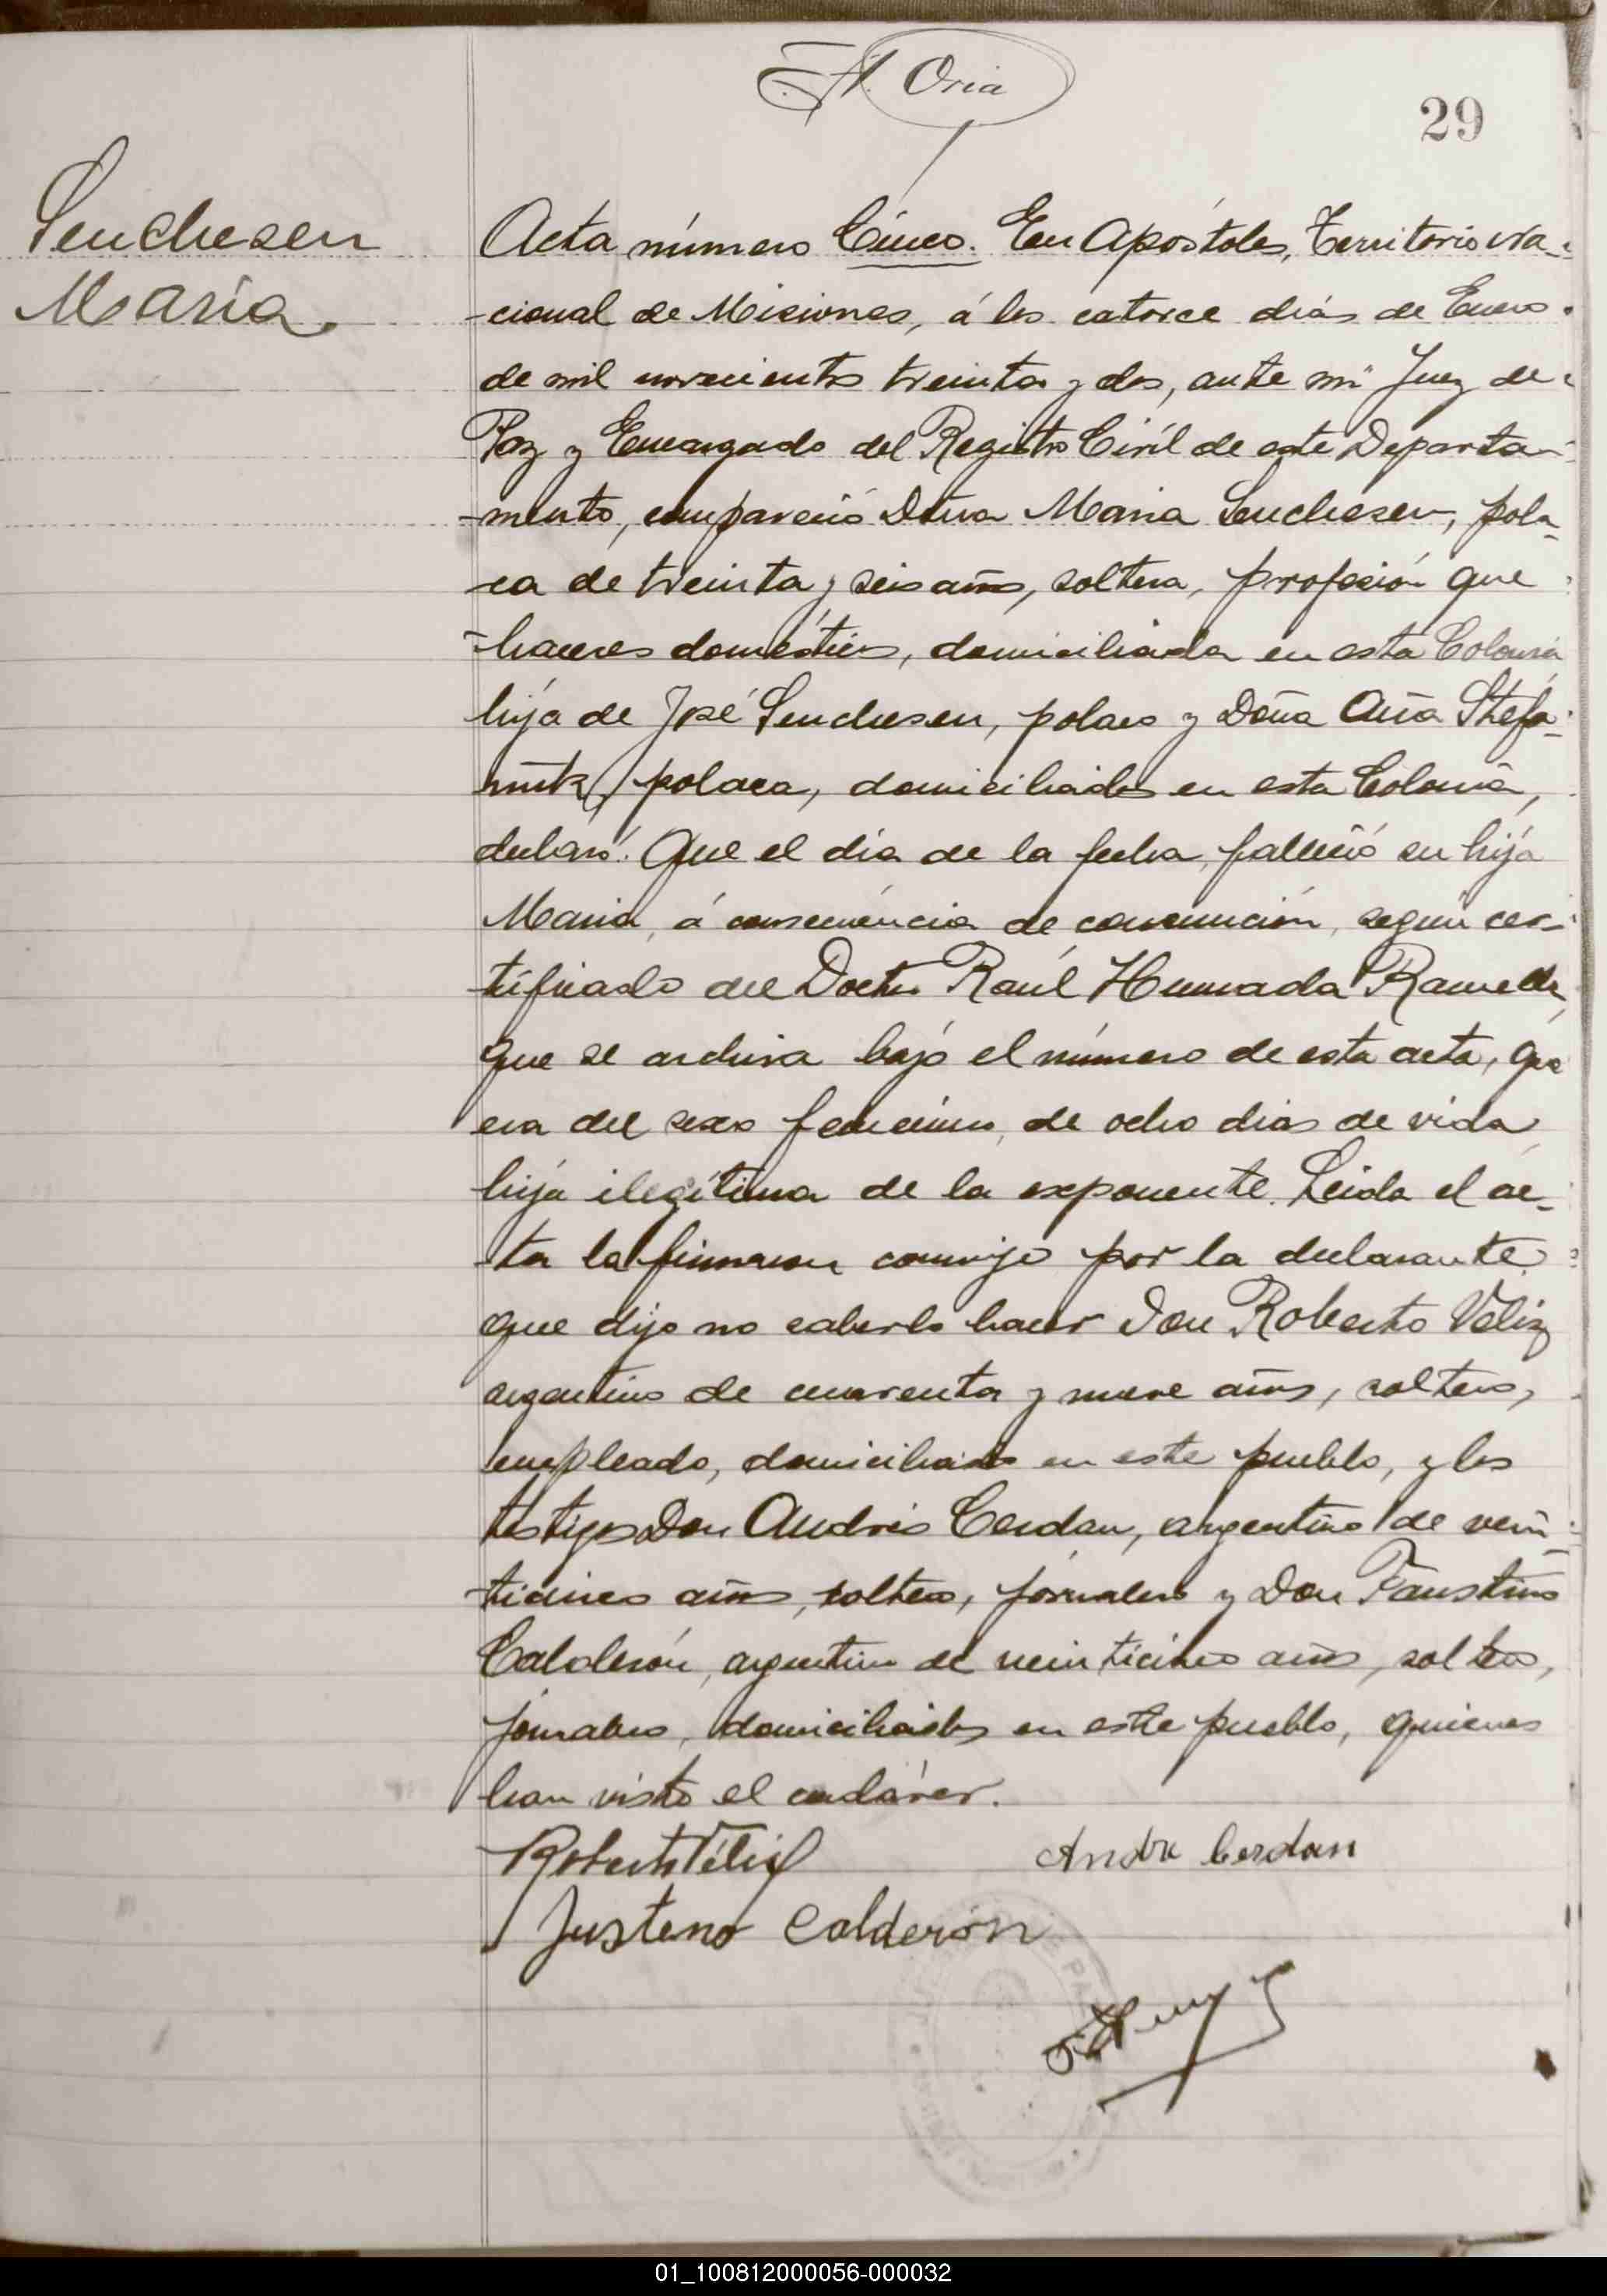 A. Oria
29
Senchesen
María
Acta número Cinco. En Apóstoles, Territorio Na-
-cional de Misiones, á los catorce días de Enero
de mil novecientos treinta y dos, ante mi Juez de
Paz y Encargado del Registro Civíl de este Departa-
-mento, compareció Doña Maria Senchesen, pola-
-ca de treinta y seis años, soltera, profesión que
-haceres domésticos, domiciliada en esta Colonia
hija de José Senchesen, polaco y Doña Ana Stefa-
niuk, polaca, domiciliados en esta Colonia,
declaró: Que el día de la fecha, falleció su hija
Maria, á consecuencia de consunción, según cer-
-tificado del Doctor Raúl Humada Ramella,
que se archiva bajo el número de esta acta, que
era del sexo femenino, de ocho dias de vida
hija ilegítima de la exponente. Leida el ac-
-ta la firmaron conmigo por la declarante
que dijo no saberlo hacer Don Roberto Veliz
argentino de cuarenta y nueve años, soltero,
empleado, domiciliado en este pueblo, y los
testigos Don Andrés Cerdan, argentino de vein-
-ticinco años, soltero, jornalero y Don Faustino
Calderón, argentino de veinticinco años, soltero,
jornalero, domiciliados en este pueblo, quienes
han visto el cadáver.
Roberto Véliz
Andre Cerdan
Justeno Calderón
01_100812000056-000032